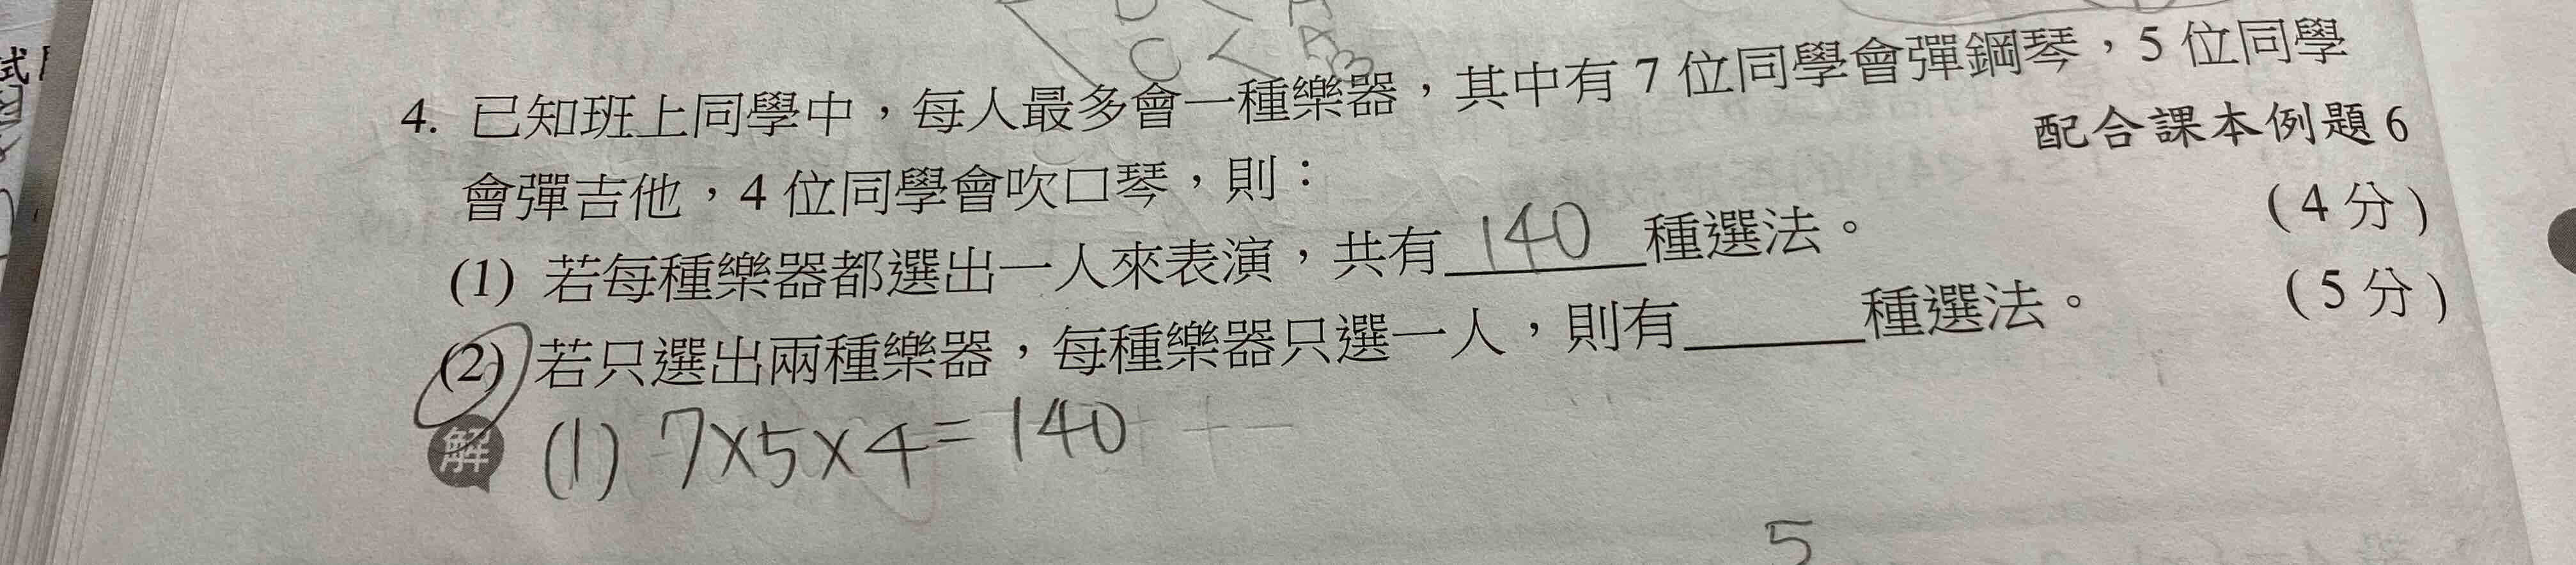 試
4. 已知班上同學中，每人最多會一種樂器，其中有 7 位同學會彈鋼琴，5 位同學
會彈吉他，4 位同學會吹口琴，則：
配合課本例題 6
(1) 若每種樂器都選出一人來表演，共有 140 種選法。
(4 分)
(2) 若只選出兩種樂器，每種樂器只選一人，則有______種選法。
(5 分)
解 (1) 7×5×4=140
5